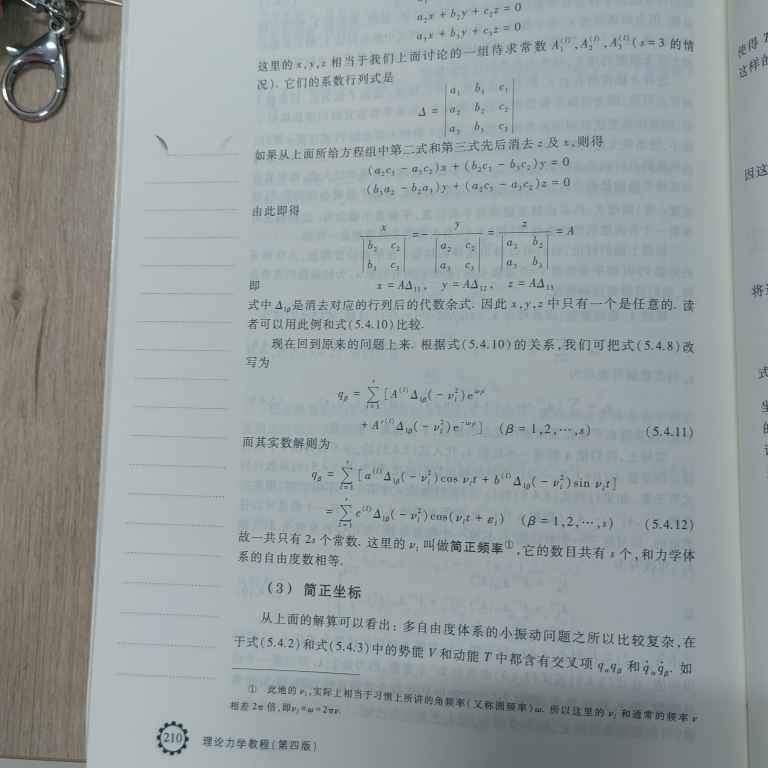 a₂x + b₂y + c₂z = 0
a₃x + b₃y + c₃z = 0
这里的 x,y,z 相当于我们上面讨论的一组待求常数 A₁⁽ˡ⁾,A₂⁽ˡ⁾,A₃⁽ˡ⁾(s=3 的情
况). 它们的系数行列式是
Δ = | a₁ b₁ c₁ |
| a₂ b₂ c₂ |
| a₃ b₃ c₃ |
如果从上面所给方程组中第二式和第三式先后消去 z 及 x,则得
(a₂c₃ − a₃c₂)x + (b₂c₃ − b₃c₂)y = 0
(b₃a₂ − b₂a₃)y + (a₂c₃ − a₃c₂)z = 0
由此即得
x / | b₂ c₂ ; b₃ c₃ | = − y / | a₂ c₂ ; a₃ c₃ | = z / | a₂ b₂ ; a₃ b₃ | = A
即 x = AΔ₁₁, y = AΔ₁₂, z = AΔ₁₃
式中 Δ₁ᵦ是消去对应的行列后的代数余式. 因此 x,y,z 中只有一个是任意的. 读
者可以用此例和式(5.4.10)比较.
现在回到原来的问题上来. 根据式(5.4.10)的关系,我们可把式(5.4.8)改
写为
(β = 1,2,⋯,s) (5.4.11)
而其实数解则为
qᵦ = Σₗ₌₁ˢ [a⁽ˡ⁾Δ₁ᵦ(− νₗ²)cos νₗt + b⁽ˡ⁾Δ₁ᵦ(− νₗ²)sin νₗt]
= Σₗ₌₁ˢ c⁽ˡ⁾Δ₁ᵦ(− νₗ²)cos(νₗt + εₗ) (β = 1,2,⋯,s) (5.4.12)
故一共只有 2s 个常数. 这里的 νₗ 叫做简正频率①,它的数目共有 s 个,和力学体
系的自由度数相等.
(3) 简正坐标
从上面的解算可以看出：多自由度体系的小振动问题之所以比较复杂,在
于式(5.4.2)和式(5.4.3)中的势能 V 和动能 T 中都含有交叉项 qₐqᵦ 和q̇ₐq̇ᵦ. 如
① 此地的 νₗ,实际上相当于习惯上所讲的角频率(又称圆频率)ω. 所以这里的 νₗ 和通常的频率 ν
相差 2π 倍,即νₗ=ω=2πν.
210 理论力学教程(第四版)
使得
这样的
因这
将
式